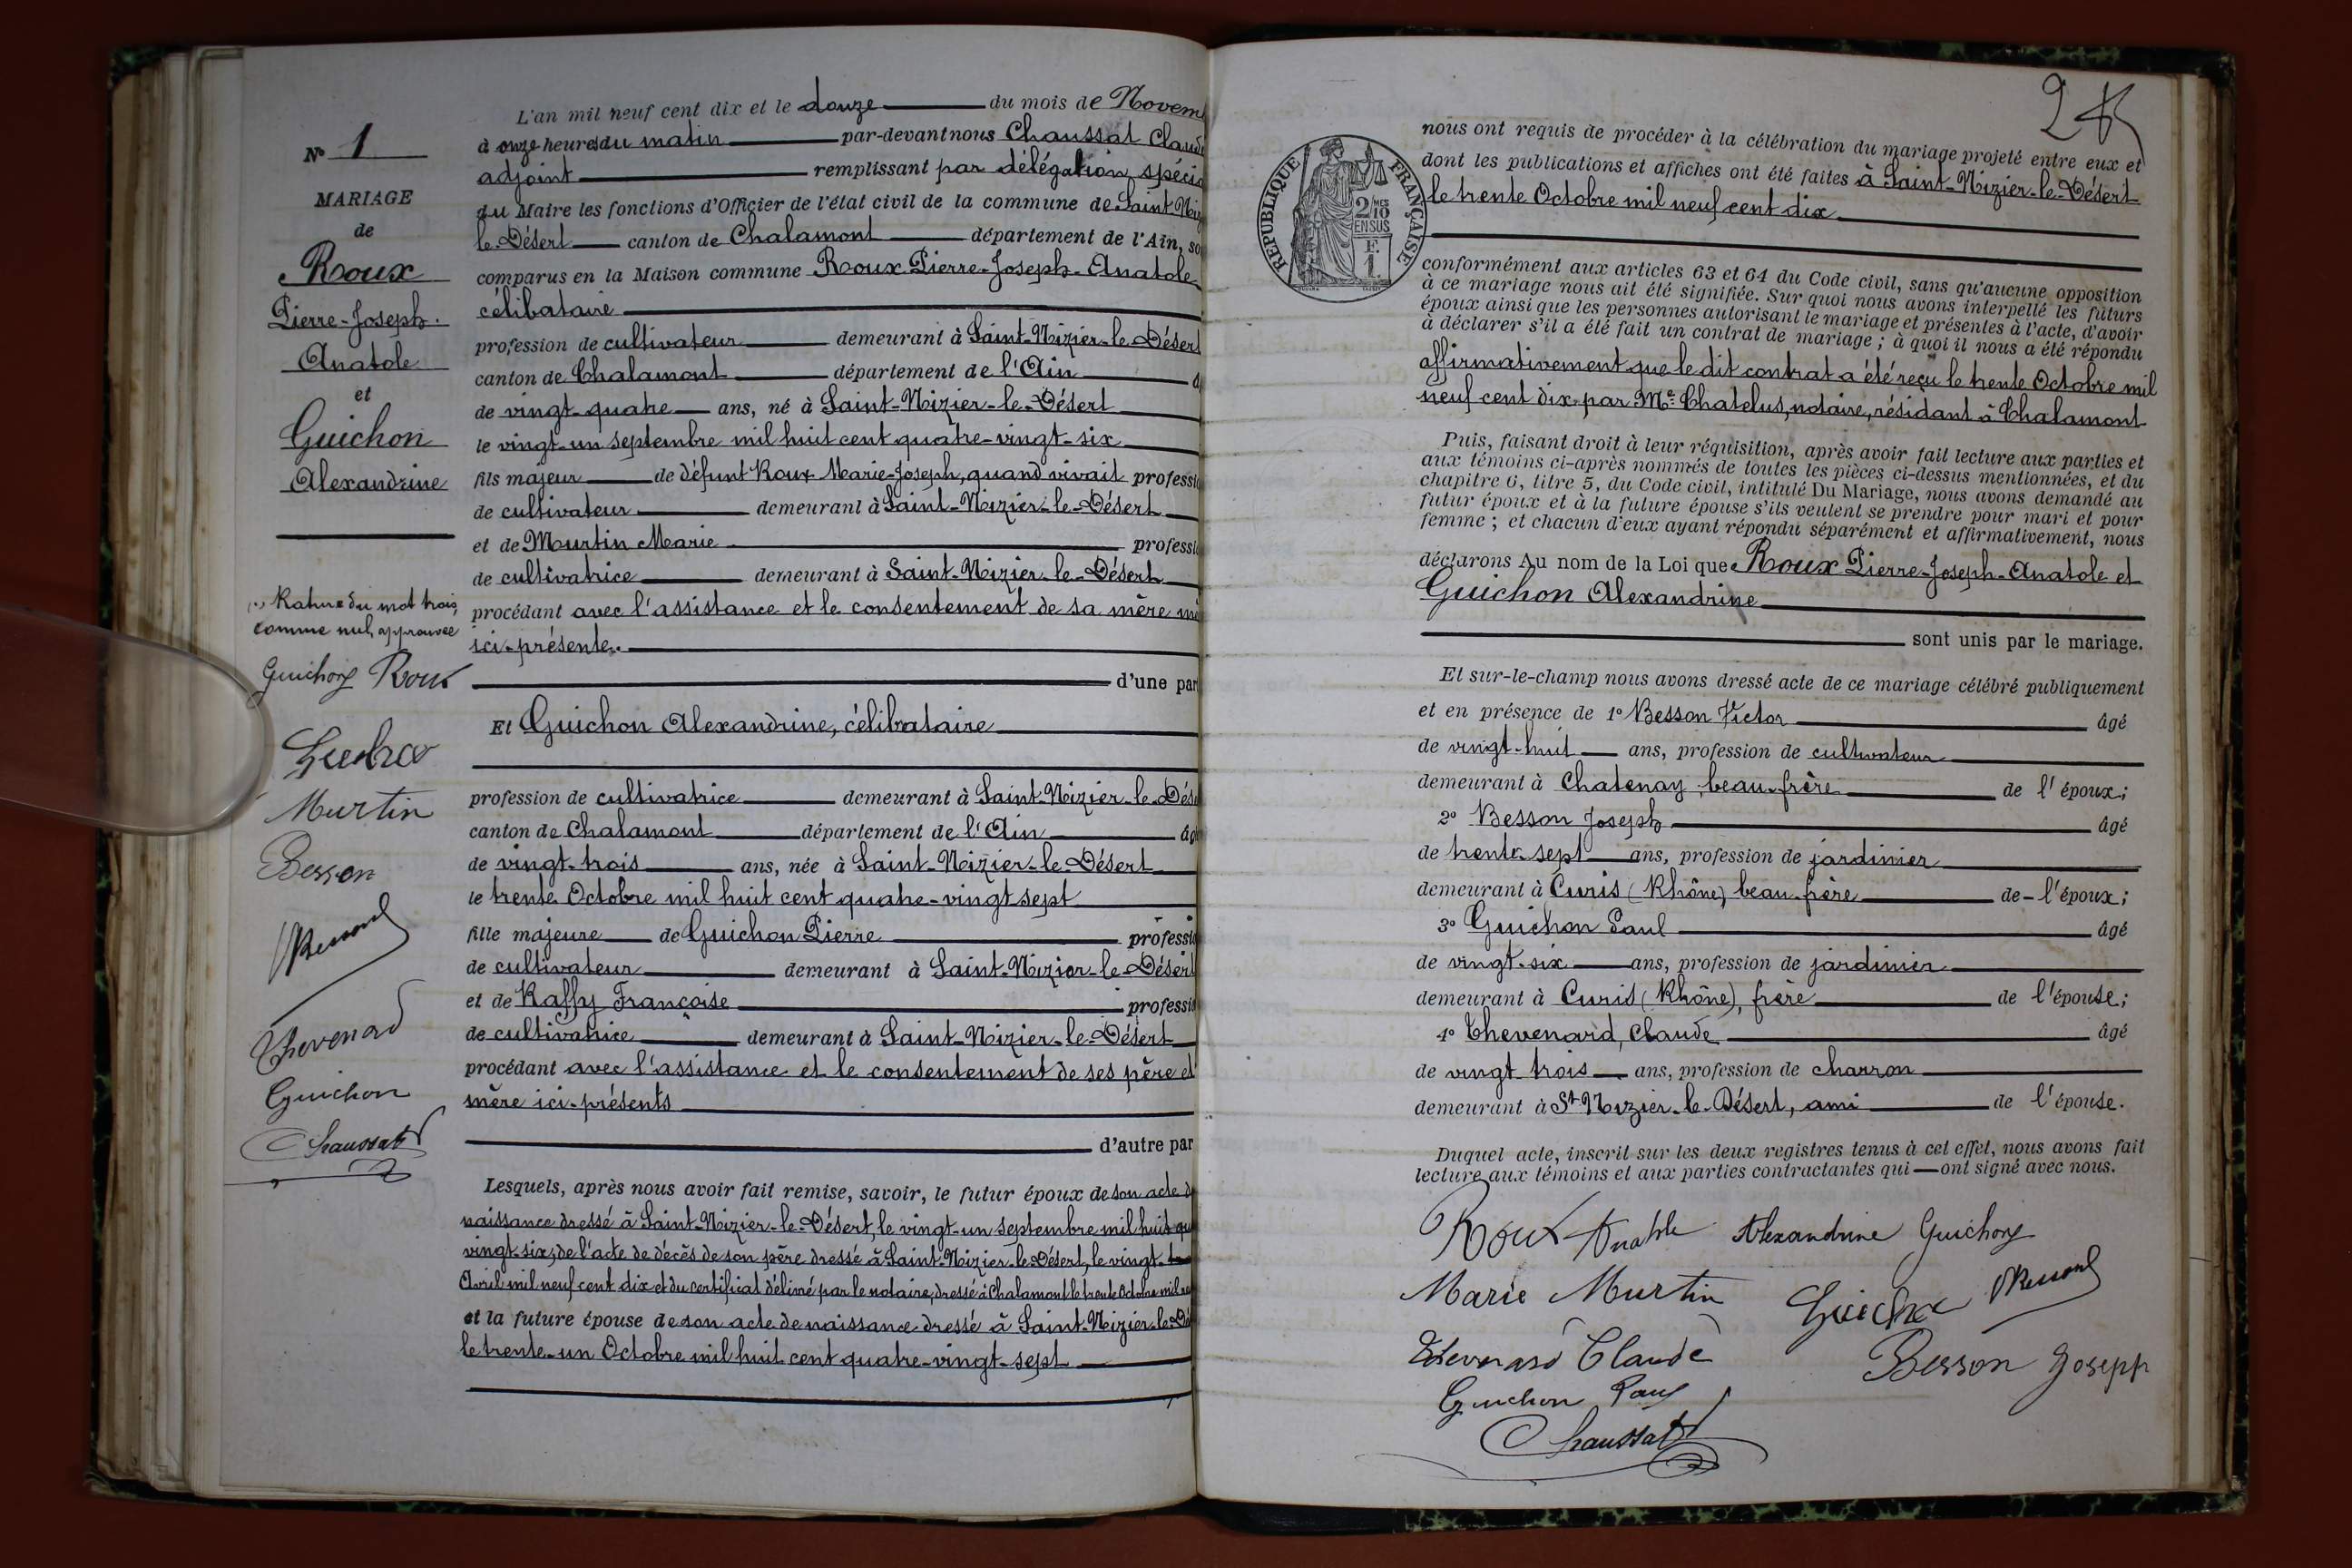 N° 1
MARIAGE
de
Roux
Pierre-Joseph.
Anatole
et
Guichon
Alexandrine
Rature du mot trois,
comme nul, approuvée
Guichon Roux
Murtin
Besson
Thevenard
Guichon
Chaussat
L'an mil neuf cent dix et le douze du mois de Novem
à onze heures du matin par-devant nous Chaussat Claude
adjoint remplissant par délégation spécia
du Maire les fonctions d'Officier de l'état civil de la commune de Saint Niz
le-Désert canton de Chalamont département de l'Ain, so
comparus en la Maison commune Roux Pierre-Joseph-Anatole
célibataire
profession de cultivateur demeurant à Saint-Nizier-le-Désert
canton de Chalamont département de l'Ain
de vingt-quatre ans, né à Saint-Nizier-le-Désert
le vingt-un septembre mil huit cent quatre-vingt-six
fils majeur de défunt Roux Marie-Joseph, quand vivait professi
de cultivateur demeurant à Saint-Nizier-le-Désert
et de Murtin Marie professi
de cultivatrice demeurant à Saint-Nizier-le-Désert
procédant avec l'assistance et le consentement de sa mère
ici-présente.
d'une par
Et Guichon Alexandrine, célibataire
profession de cultivatrice demeurant à Saint-Nizier-le-Dés
canton de Chalamont département de l'Ain âg
de vingt-trois ans, née à Saint-Nizier-le-Désert
le trente Octobre mil huit cent quatre-vingt sept
fille majeure de Guichon Pierre professi
de cultivateur demeurant à Saint-Nizier-le-Désert
et de Raffy Françoise professi
de cultivatrice demeurant à Saint-Nizier-le-Désert
procédant avec l'assistance et le consentement de ses père et
mère ici-présents
d'autre par
Lesquels, après nous avoir fait remise, savoir, le futur époux de son acte d
naissance dressé à Saint-Nizier-le-Désert, le vingt-un septembre mil huit
vingt-six; de l'acte de décès de son père dressé à Saint-Nizier-le-Désert, le vingt
Avril mil neuf cent dix et du certificat délivré par le notaire, dressé à Chalamont le trente Octobre mil
et la future épouse de son acte de naissance dressé à Saint-Nizier-le-Dé
le trente-un Octobre mil huit cent quatre-vingt-sept
RÉPUBLIQUE FRANÇAISE
2 MES
10
EN SUS
F.
1.
nous ont requis de procéder à la célébration du mariage projeté entre eux et
dont les publications et affiches ont été faites à Saint-Nizier-le-Désert
le trente Octobre mil neuf cent dix
conformément aux articles 63 et 64 du Code civil, sans qu'aucune opposition
à ce mariage nous ait été signifiée. Sur quoi nous avons interpellé les futurs
époux ainsi que les personnes autorisant le mariage et présentes à l'acte, d'avoir
à déclarer s'il a été fait un contrat de mariage ; à quoi il nous a été répondu
affirmativement que le dit contrat a été reçu le trente Octobre mil
neuf cent dix par Me Chatelus, notaire, résidant à Chalamont
Puis, faisant droit à leur réquisition, après avoir fait lecture aux parties et
aux témoins ci-après nommés de toutes les pièces ci-dessus mentionnées, et du
chapitre 6, titre 5, du Code civil, intitulé Du Mariage, nous avons demandé au
futur époux et à la future épouse s'ils veulent se prendre pour mari et pour
femme ; et chacun d'eux ayant répondu séparément et affirmativement, nous
déclarons Au nom de la Loi que Roux Pierre-Joseph-Anatole et
Guichon Alexandrine
sont unis par le mariage.
Et sur-le-champ nous avons dressé acte de ce mariage célébré publiquement
et en présence de 1° Besson Victor âgé
de vingt-huit ans, profession de cultivateur
demeurant à Chatenay, beau-frère de l'époux;
2° Besson Joseph âgé
de trente-sept ans, profession de jardinier
demeurant à Curis (Rhône) beau-frère de l'époux;
3° Guichon Paul âgé
de vingt-six ans, profession de jardinier
demeurant à Curis (Rhône), frère de l'épouse;
4° Thevenard, Claude âgé
de vingt-trois ans, profession de charron
demeurant à St Nizier-le-Désert, ami de l'épouse.
Duquel acte, inscrit sur les deux registres tenus à cet effet, nous avons fait
lecture aux témoins et aux parties contractantes qui ont signé avec nous.
Roux Anatole Alexandrine Guichon
Marie Murtin
Thevenard Claude
Besson Joseph
Guichon Paul
Chaussat